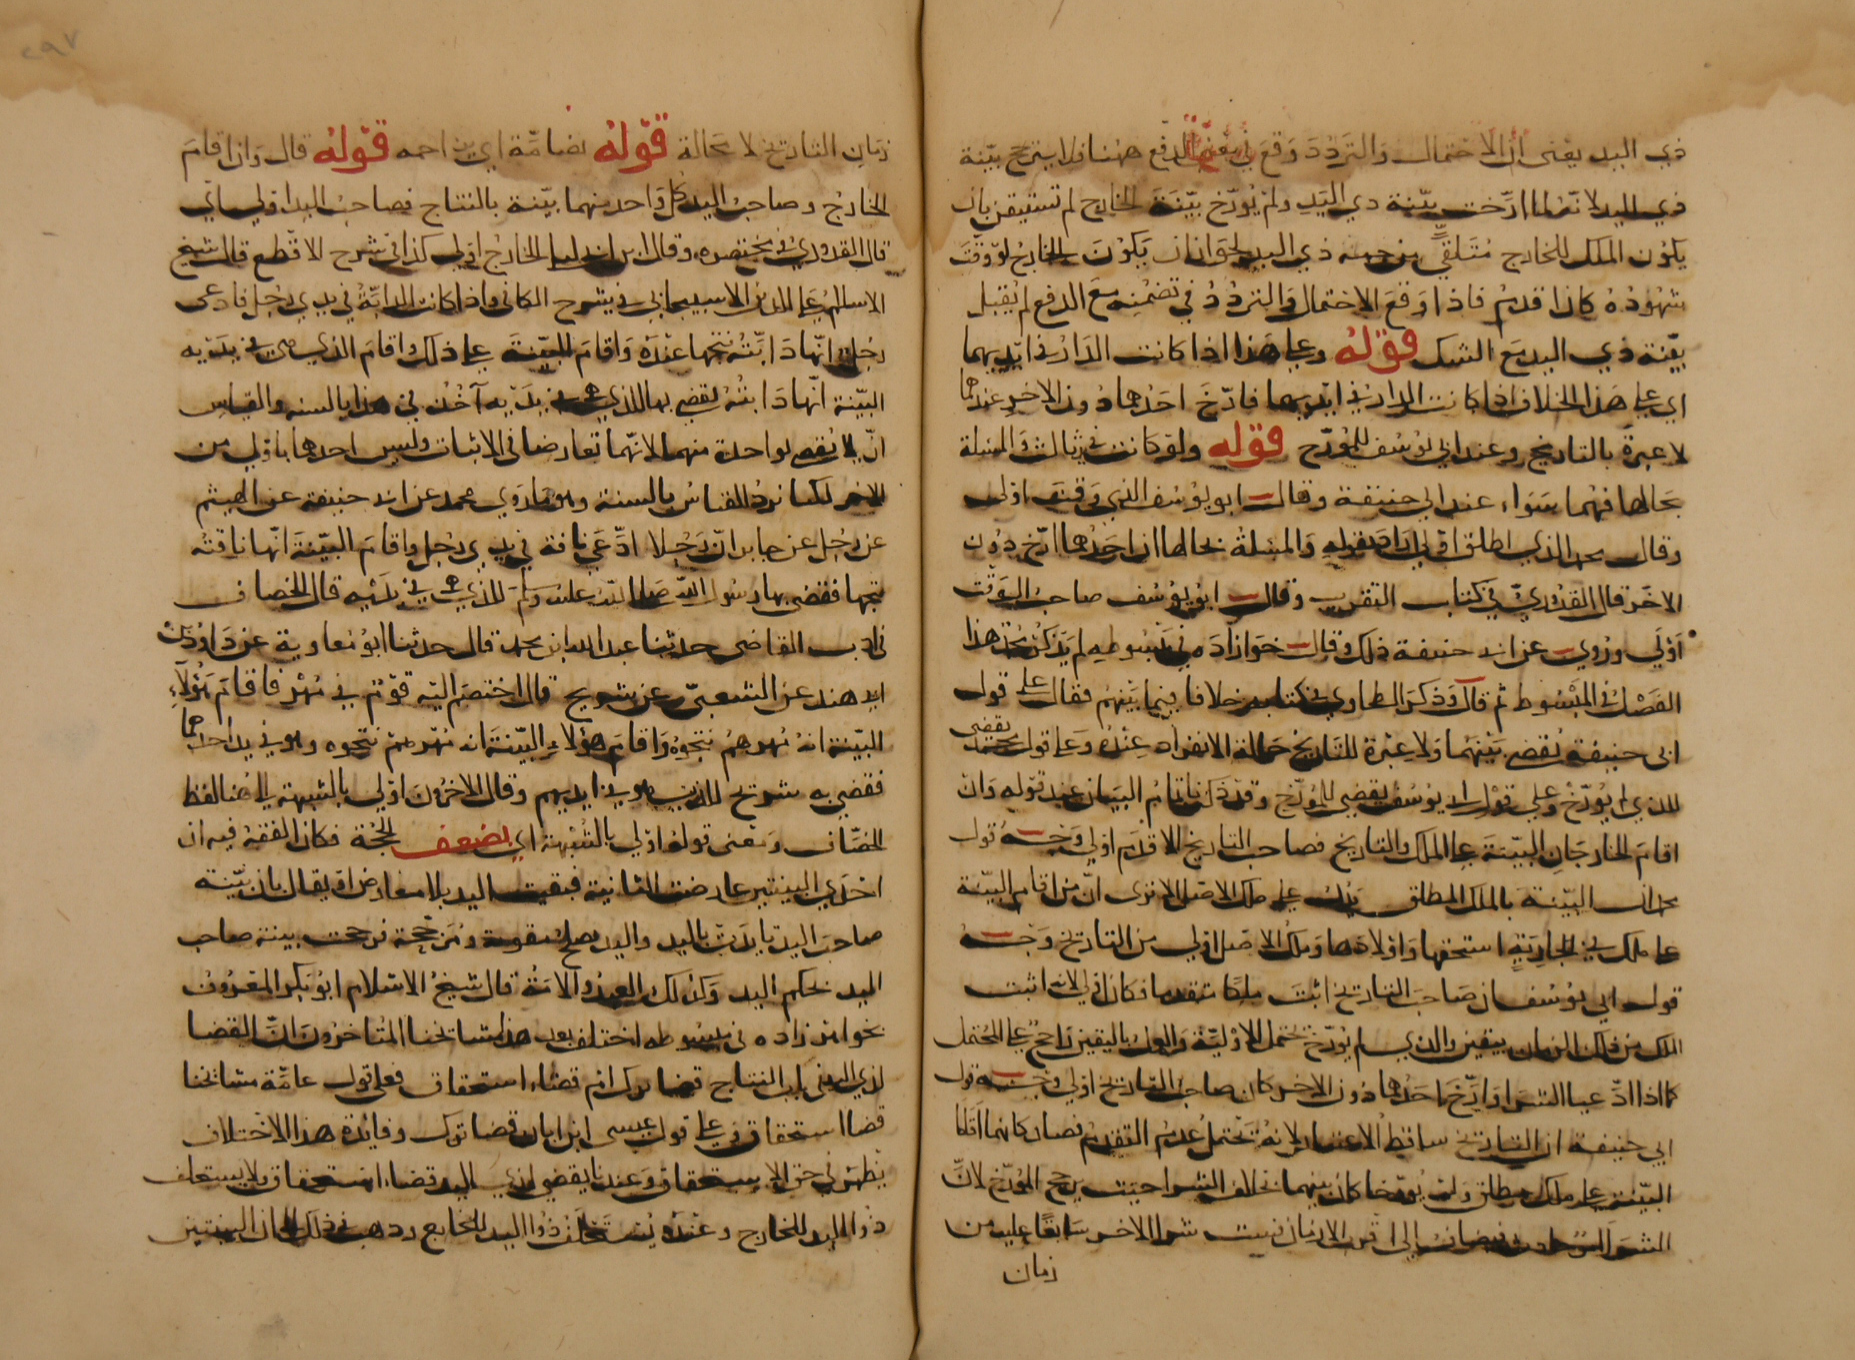 ذي اليد يعنى ان الاحتمال والتردد وقع في معنى الدفع ههنا فلا يترجح بيّنة
ذي اليد لانه لما ارّخت بيّنة ذي اليد ولم يؤرّخ بيّنة الخارج لم نستيقن بان
يكون الملك للخارج متلقى من جهة ذي اليد لجواز ان يكون الخارج لو وقّت
شهوده كان اقدم فاذا وقع الاحتمال والتردد في تضمنه مع الدفع لم يقبل
بيّنة ذي اليد مع الشك قوله وعلى هذا اذا كانت الدار في ايديهما
اي على هذا الخلاف اذا كانت الدار في ايديهما فارّخ احدهما دون الاخر عندهما
لا عبرة بالتاريخ وعند ابي يوسف للمؤرّخ قوله ولو كانت في يد ثالث والمسئلة
بحالها فهما سواء عند ابي حنيفة وقال ابو يوسف الذي وقت اولى
وقال محمد الذي اطلق اولى اراد بقوله والمسئلة بحالها ان احدهما ارّخ دون
الاخر قال القدوري في كتاب التقريب وقال ابو يوسف صاحب الوقت
اولى وروي عن ابي حنيفة ذلك وقال خواهرزاده في مبسوطه لم يذكر محمد هذا
الفصل في المبسوط ثم قال وذكر الطحاوي في كتابه خلافا فيما بينهم فقال على قول
ابي حنيفة يقضى بينهما ولا عبرة للتاريخ حالة الانفراد عنده وعلى قول محمد يقضى
للذي لم يؤرّخ وعلى قول ابي يوسف يقضى للمؤرّخ وقد ذكرنا تمام البيان عند قوله وان
اقام الخارجان البيّنة على الملك والتاريخ فصاحب التاريخ الاقدم اولى وجه قول
محمد ان البيّنة بالملك المطلق يدل على ملك الاصل الا ترى ان من اقام البيّنة
على ملك في الجارية استحقها واولادها وملك الاصل اولى من التاريخ وجه
قول ابي يوسف ان صاحب التاريخ اثبت ملكا متقدما فكان اولى لانه اثبت
الملك من ذلك الزمان بيقين والذي لم يؤرّخ يحتمل الاوليّة والعمل باليقين راجح على المحتمل
كما اذا ادّعيا الشرا وارّخ احدهما دون الاخر كان صاحب التاريخ اولى وجه قول
ابي حنيفة ان التاريخ ساقط الاعتبار لانه يحتمل عدم التقدم فصار كانهما اقاما
البيّنة على ملك مطلق ولم يؤرخا كان بينهما بخلاف الشرا حيث يرجح المؤرّخ لان
الشرا حادث فيضاف الى اقرب الازمان فيثبت شرا الاخر سابقا عليه من
زمان
زمان التاريخ لا محالة قوله قال واذا اقام
الخارج وصاحب اليد كل واحد منهما بيّنة بالنتاج فصاحب اليد اولى اي
قال القدوري في مختصره وقال ابن ابي ليلى الخارج اولى كذا في شرح الاقطع قال شيخ
الاسلام علا الدين الاسبيجابي في شرح الكافي واذا كانت الدابّة في يدي رجل فادعى
رجل انها دابّته نتجها عنده واقام البيّنة على ذلك واقام الذي هي في يديه
البيّنة انها دابته يقضى بها للذي هي في يديه آخذ في هذا بالسنة والقياس
ان لا يقضى لواحدة منهما لانهما تعارضا في الاثبات وليس احدهما باولى من
الاخر لكنا تركنا القياس بالسنة وهو ما روي محمد عن ابي حنيفة عن الهيثم
عن رجل عن جابر ان رجلا ادّعى ناقة في يدي رجل واقام البيّنة انها ناقته
نتجها فقضى بها رسول الله صلى الله عليه وسلم للذي هي في يديه قال الخصاف
في ادب القاضي حدثنا عبد الله ابن محمد قال حدثنا ابو معاوية عن داود بن
ابي هند عن الشعبي عن شريح قال اختصم اليه قوم في مهر فاقام هؤلاء
البيّنة انه مهرهم نتجوه واقام هؤلاء البيّنة انه مهرهم نتجوه وهو في يد احدهما
فقضى به شريح للذين هو في ايديهم وقال الاخرون اولى بالشبهة الى هنا لفظ
الخصّاف ومعنى قوله اولى بالشبهة اي لضعف الحجة فكان الفقه فيه ان
احدي البينتين عارضت الثانية فبقيت اليد بلا معارض او يقال بان بيّنة
صاحب اليد تايدت باليد واليد يصلح مقوية ومرجّحة فرجحت بينة صاحب
اليد بحكم اليد وكذلك العبد والامة قال شيخ الاسلام ابو بكر المعروف
بخواهرزاده في مبسوطه اختلف بعد هذا مشايخنا المتاخرون ان القضا
لذي اليد في باب النتاج قضا ترك ام قضاء استحقاق فعلى قول عامّة مشايخنا
قضا استحقاق وفي على قول عيسى ابن ابان قضا ترك وفائدة هذا الاختلاف
تظهر في حق الاستحقاق وعندنا يقضى لذي اليد قضاء استحقاق ولا يستحلف
ذو اليد للخارج وعنده يستحلف ذو اليد للخارج وذهب في ذلك الى ان البينتين